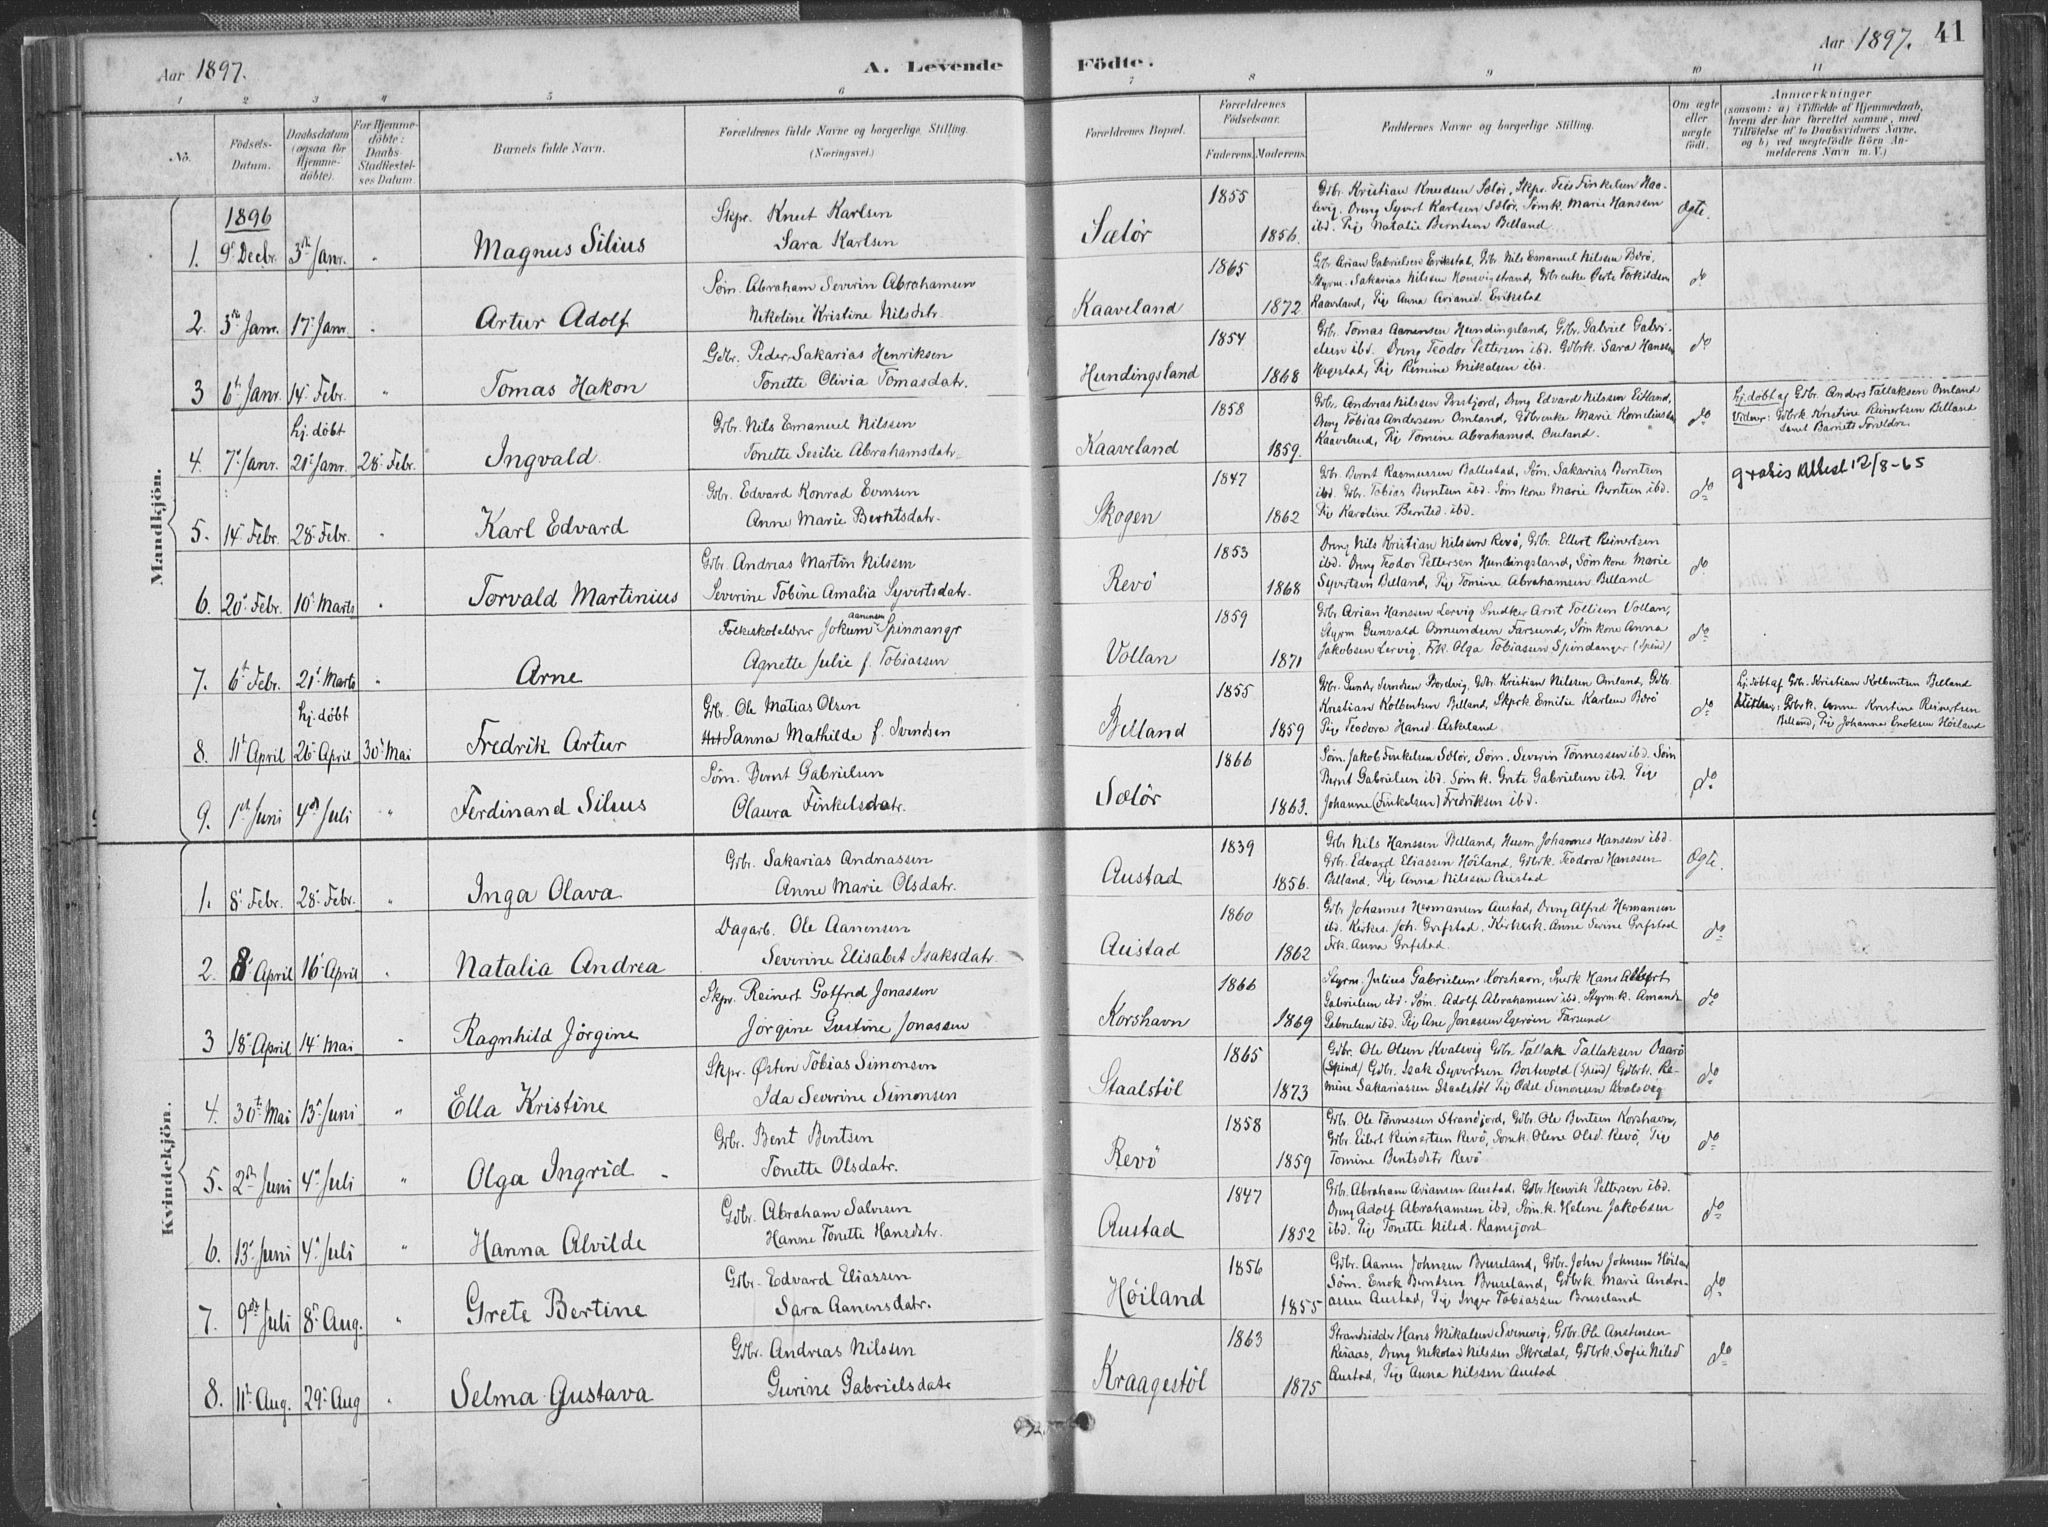 Aar 1897.
A. Levende
Födte.
Aar 1897. 41
1 2 3 4 5 6 7 8 9 10 11
No.
Födsels-
Datum.
Daabsdatum
(ogsaa for
Hjemme-
döbte).
For Hjemme-
döbte:
Daabs-
Stadfæstel-
ses Datum.
Barnets fulde Navn.
Forældrenes fulde Navne og borgerlige Stilling.
(Næringsvei.)
Forældrenes Bopæl.
Forældrenes
Födselsaar.
Faderens. Moderens.
Faddernes Navne og borgerlige Stilling.
Om ægte
eller
uægte
födt.
Anmærkninger
(saasom: a) i Tilfælde af Hjemmedaab,
hvem der har forrettet samme, med
Tilföielse af to Daabsvidners Navne,
og b) ved uegtefödte Börn An-
melderens Navn m. V.)
Mandkjön.
1896
1. 9 Decbr. 3 Janr. " Magnus Silius
Skpr. Knut Karlsen
Sara Karlsen
Sælör 1855 1856.
Gdbr. Kristian Knudsen Sælör, Skpr. Feis Finkelsen Haa-
levig. Dreng Syvert Karlsen Sælör. Sömk. Marie Hanssen
ibd. Pig. Natalie Berntsen Belland
Ægte.
2. 3 Janr. 17 Janr. " Artur Adolf
Söm. Abraham Severin Abrahamsen
Nikoline Kristine Nilsdtr.
Kaaveland 1865 1872
Gbr. Arian Gabrielsen Erikstad, Gbr. Nils Emanuel Nilsen Borö,
Styrm. Sakarias Nilssen, Gdbr.enke Torkildsen
Kaaveland, Pig. Anna Arianse. Erikstad
do
3 6 Janr. 14 Febr. " Tomas Hakon
Gdbr. Peder Sakarias Henriksen
Tonette Olivia Tomasdatr.
Hundingsland 1854 1868
Gdbr. Tomas Aanensen Hundingsland, Gdbr. Gabriel Gabri-
elsen ibd. Dreng Teodor Pettersen ibd. Gdbrk. Sara Hanssen
Hegestad, Pig Remine Mikalsen ibd.
do
hj. döbt
4. 7 Janr. 21 Janr. 28 Febr. Ingvald.
Gdbr. Nils Emanuel Nilssen
Tonette Sesilie Abrahamsdatr.
Kaaveland 1858 1859.
Gdbr. Andrias Nilssen, Dreng Edvard Nilssen Eitland,
Dreng Tobias Andersen Omland, Gdbrenke Marie Korneliussen
Kaaveland, Pig Tomine Abrahamsd Omland.
do
hj. döbt af Gdbr. Anders Tallaksen Omland
Vidner: Gdbrk. Kristine Reinertsen Belland
samt Barnets Foreldre.
5. 14 Febr. 28 Febr. " Karl Edvard
Gdbr. Edvard Konrad Evensen
Anne Marie Berntsdatr.
Skogen 1847 1862
Gdbr. Bernt Rasmussen Ballestad, Söm. Sakarias Berntsen
ibd. Gdbr. Tobias Berntsen ibd. Söm kone Marie Berntsen ibd.
Pig Karoline Berntsd. ibd.
do
gratis Attest 12/8-65
6. 20 Febr. 10 Marts " Torvald Martinius
Gdbr. Andreas Martin Nilssen
Severine Tobine Amalia Syvertsdatr.
Revö 1853 1868
Dreng Nils Kristian Nilssen Revö, Gdbr. Ellert Reinertsen
ibd. Dreng Teodor Pettersen Hundingsland, Sömkone Marie
Syvertsen Belland, Pig Tomine Abrahamsen Belland
do
7. 6 Febr. 21 Marts " Arne
Aanensen
Folkeskolelærer Jokum Spinnangr
Agnette Julie f. Tobiassen
Vollan 1859 1871
Gdbr. Arian Hanssen Lervig Snedker Arnt Tollisen Vollan,
Styrm Gunvald Osmundsen Farsund, Sömkone Anna
Jakobsen Lervig. Frk. Olga Tobiassen Spindanger (Spind)
do
hj. döbt
8. 11 April 26 April 30 Mai Fredrik Artur
Gdbr. Ole Matias Olsen
Sanna Mathilde f. Svendsen
Belland 1855 1859
Gdbr. Gunder Svendsen, Gdbr. Kristian Nilssen Omland, Gdbr
Kristian Kolbentsen Belland, Skprk Emilie Karlsen Borö
Pige Teodora Hansd. Askeland
do
hj. döbt af Gdbr. Kristian Kolbentsen Belland
Vidner: Gdbrk. Anne Kristine Reinertsen
Belland, Pig Johanne Enoksen Höiland
9. 1 Juni 4 Juli " Ferdinand Silius
Söm. Bernt Gabrielsen
Olaura Finkelsdatr.
Sælör 1866 1863.
Söm. Jakob Finkelsen Sælör, Söm. Severin Tönnessen ibd. Söm
Bernt Gabrielsen ibd. Sömk. Grete Gabrielsen ibd. Pige
Johanne (Finkelsen) Fredriksen ibd.
do
Kvindekjön.
1. 8 Febr. 28 Febr. " Inga Olava
Gdbr. Sakarias Andreassen
Anne Marie Olsdatr.
Austad 1839 1856.
Gdbr Nils Hanssen Belland, Husm. Johannes Hanssen ibd.
Gdbr. Edvard Eliassen Höiland, Gdbrk. Teodora Hanssen
Belland, Pig Anna Nilssen Austad
Ægte.
2. 8 April 16 April " Natalia Andrea
Dagarb. Ole Aanensen
Severine Elisabet Isaksdatr.
Austad 1860 1862
Gdbr Johannes Hermansen Austad, Dreng Alfred Hermansen
ibd. Kirkes. Joh. Grefstad, Kirkesk. Anne Serine Grefstad
Frk. Anna Grefstad.
do
3 18 April 14 Mai " Ragnhild Jörgine
Skpr. Reinert Gotfred Jonassen
Jörgine Gustine Jonassen
Korshavn 1866 1869
Styrm. Julius Gabrielsen Korshavn, Snedk Hans Albert
Gabrielsen ibd. Söm. Adolf Abrahamsen ibd. Styrm.k. Amanda
Gabrielsen ibd. Pig Ane Jonassen Egeröen Farsund
do
4. 30 Mai 13 Juni " Ella Kristine
Skpr. Östen Tobias Simonsen
Ida Severine Simonsen
Staalstöl 1865 1873
Gdbr. Ole Olsen Kvalsvig Gdbr. Tallak Tallaksen Vaarö
(Spind) Gdbr. Isak Syvertsen Bortevold (Spind) Gdbrk. Re-
mine Sakariassen Staalstöl Pig Odel Simonsen Kvalsveg
do
5. 2 Juni 4 Juli " Olga Ingrid
Gdbr. Bent Bentsen
Tonette Olsdatr.
Revö 1858 1859
Gdbr. Ole Tönnessen Strandfjord, Gdbr. Ole Bentsen Korshavn,
Gdbr Eilert Reinertsen Revö, Somk. Olene Olsd. Revö, Pig
Tomine Bentsdtr Revö
do
6. 13 Juni 4 Juli " Hanna Alvilde
Gdbr. Abraham Salvesen
Hanne Tonette Hansdtr.
Austad 1847 1852
Gdbr. Abraham Ariansen Austad, Gdbr. Henrik Pettersen ibd.
Dreng Adolf Abrahamsen ibd, Söm.k. Helene Jakobsen
ibd. Pig Tonette Nilsd. Ramsfjord
do
7. 9 Juli 8 Aug. " Grete Bertine
Gdbr. Edvard Eliassen
Sara Aanensdatr.
Höiland 1856 1855
Gdbr. Aanen Johnsen Bruseland, Gdbr. John Johnsen Höiland
Söm. Enok Berntsen Bruseland, Gdbrk Marie Andre-
assen Austad, Pig Inger Tobiassen Bruseland
do
8. 11 Aug. 29 Aug " Selma Gustava
Gdbr. Andreas Nilssen
Gurine Gabrielsdatr
Kraagestöl 1863 1875
Strandsidder Hans Mikalsen Svenevig, Gdbr. Ole Anstensen
Reraas, Dreng Nikolai Nilssen Skredal, Gdbrk. Sofie Nilsd
Austad, Pige Anna Nilssen Austad
do